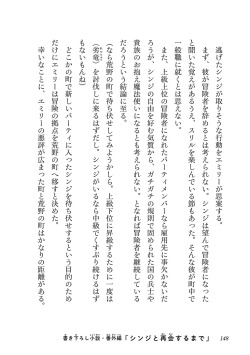 逃げたシンジが取りそうな行動をエミリーが思案する。
まず、彼が冒険者を辞めるとは考えられない。シンジは望んで冒険者になった
と聞いた覚えがあるうえ、スリルを楽しんでいる節もあった。そんな彼が町中で
一般職に就くとは思えない。
また、上級上位の冒険者になれたパーティメンバーなら雇用先に事欠かないだ
ろうが、シンジの自由を好む気質から、ガチガチの規則で固められた国の兵士や
貴族のお抱え魔法使いになるとも考えられない。となれば冒険者を継続している
だろうという結論に至る。
(なら荒野の町で待ち伏せしてみようかしら。上級下位に昇級するために一度は
〈劣竜〉を討伐しに来るはずだし、シンジがいるなら中級でくすぶり続けるはず
もないもんね)
どこかの町で新しいパーティに入ったシンジを待ち伏せするという目的のため
だけにエミリーは冒険の拠点を荒野の町へ移すと決めた。
幸いなことに、エミリーの悪評が広まった町と荒野の町ではかなりの距離がある。
書き下ろし小説・番外編「シンジと再会するまで」 148